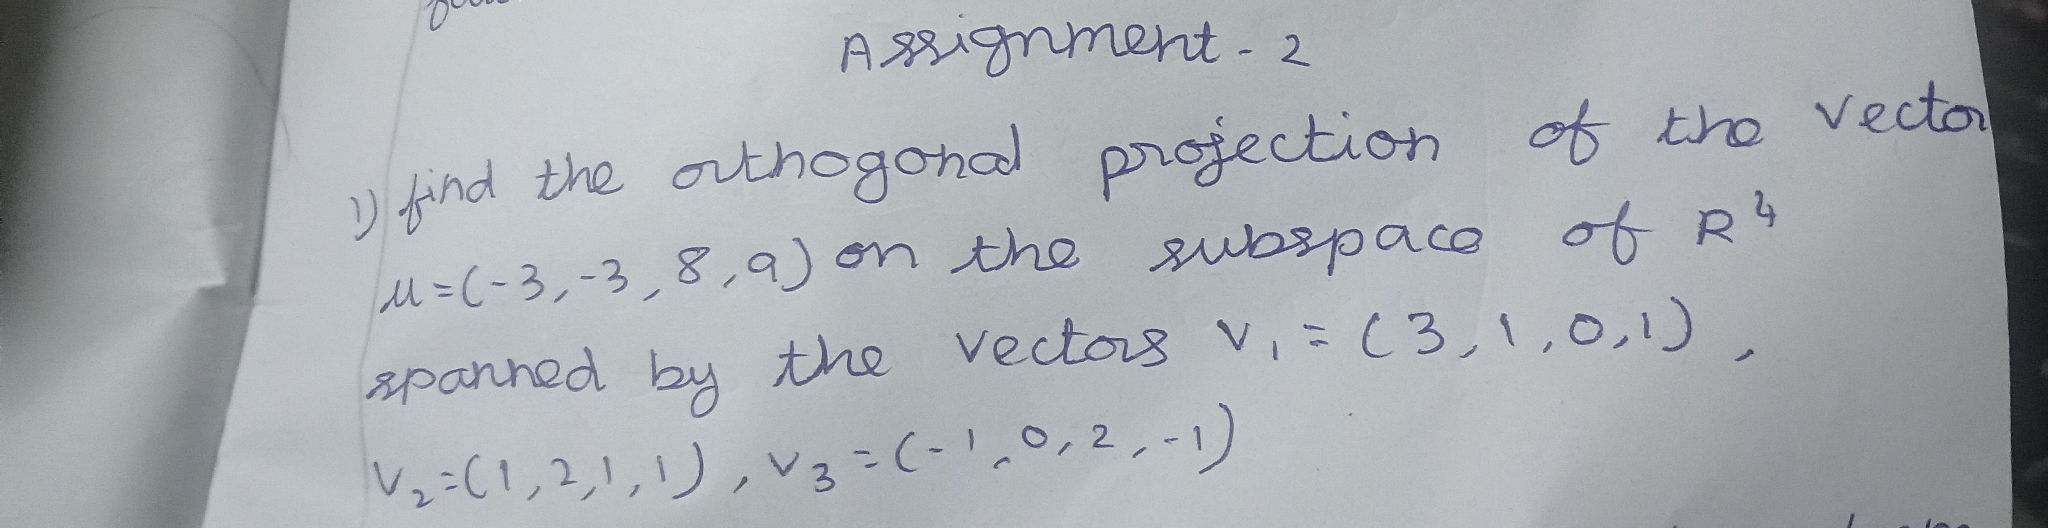 Assignment - 2
1) find the orthogonal projection of the vector
u=(-3,-3,8,9) on the subspace of R⁴
spanned by the vectors v₁=(3,1,0,1),
v₂=(1,2,1,1), v₃=(-1,0,2,-1)